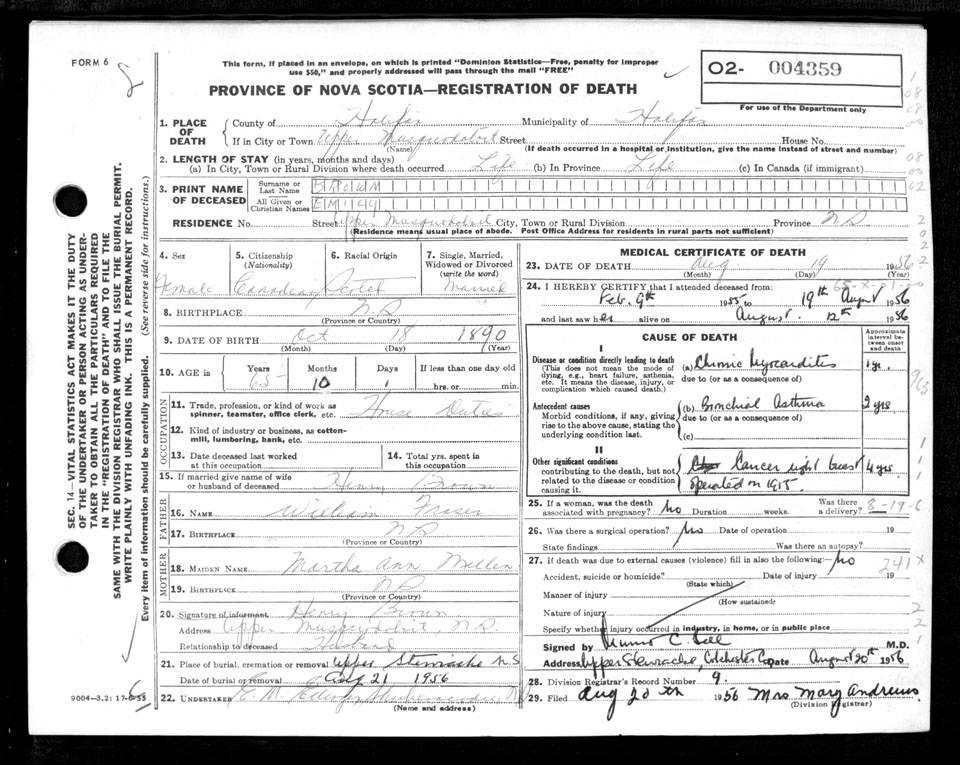 FORM 6
This form, if placed in an envelope, on which is printed "Dominion Statistics—Free, penalty for improper
use $50," and properly addressed will pass through the mail "FREE"
O2- 004359
For use of the Department only
PROVINCE OF NOVA SCOTIA—REGISTRATION OF DEATH
SEC. 14—VITAL STATISTICS ACT MAKES IT THE DUTY
OF THE UNDERTAKER OR PERSON ACTING AS UNDER-
TAKER TO OBTAIN ALL THE PARTICULARS REQUIRED
IN THE "REGISTRATION OF DEATH" AND TO FILE THE
SAME WITH THE DIVISION REGISTRAR WHO SHALL ISSUE THE BURIAL PERMIT.
WRITE PLAINLY WITH UNFADING INK. THIS IS A PERMANENT RECORD.
Every item of information should be carefully supplied. (See reverse side for instructions.)
1. PLACE OF DEATH County of Halifax Municipality of Halifax
If in City or Town Upper Musquodoboit Street House No.
(Name) (If death occurred in a hospital or institution, give the name instead of street and number)
2. LENGTH OF STAY (in years, months and days)
(a) In City, Town or Rural Division where death occurred Life (b) in Province Life (c) In Canada (if immigrant)
3. PRINT NAME OF DECEASED Surname or Last Name BROWN
All Given or Christian Names
RESIDENCE No. Street Upper Musquodoboit City, Town or Rural Division Province N S
(Residence means usual place of abode. Post Office Address for residents in rural parts not sufficient)
4. Sex Female
5. Citizenship (Nationality) Canadian
6. Racial Origin Scotch
7. Single, Married, Widowed or Divorced (write the word) Married
8. BIRTHPLACE N S
(Province or Country)
9. DATE OF BIRTH Oct 18 1890
(Month) (Day) (Year)
10. AGE in Years 65 Months 10 Days 1 If less than one day old
hrs. or min.
OCCUPATION
11. Trade, profession, or kind of work as spinner, teamster, office clerk, etc. House Duties
12. Kind of industry or business, as cotton-mill, lumbering, bank, etc.
13. Date deceased last worked at this occupation
14. Total yrs. spent in this occupation
15. If married give name of wife or husband of deceased Henry Brown
FATHER
16. NAME William Fraser
17. BIRTHPLACE N S
(Province or Country)
MOTHER
18. MAIDEN NAME Martha Ann Millen
19. BIRTHPLACE N S
(Province or Country)
20. Signature of informant Henry Brown
Address Upper Musquodoboit, N S
Relationship to deceased Husband
21. Place of burial, cremation or removal Upper Stewiacke N S
Date of burial or removal Aug 21 1956
22. UNDERTAKER E. M. Shubenacadie
(Name and address)
9004-3.2: 17-6-55
MEDICAL CERTIFICATE OF DEATH
23. DATE OF DEATH Aug 19 1956
(Month) (Day)
24. I HEREBY CERTIFY that I attended deceased from:
Feb. 9th 1955 to 19th August 1956
and last saw her alive on August 12th 1956
CAUSE OF DEATH
Approximate interval between onset and death
I
Disease or condition directly leading to death
(This does not mean the mode of dying, e.g., heart failure, asthenia, etc. It means the disease, injury, or complication which caused death.)
(a) Chronic Myocarditis 1 yr.
due to (or as a consequence of)
Antecedent causes
Morbid conditions, if any, giving rise to the above cause, stating the underlying condition last.
(b) Bronchial Asthma 2 yrs
due to (or as a consequence of)
(c)
II
Other significant conditions
contributing to the death, but not related to the disease or condition causing it.
Cancer right breast 4 yrs
operated on
25. If a woman, was the death associated with pregnancy? no Duration weeks. Was there a delivery? 8-19-6
26. Was there a surgical operation? No Date of operation 19
State findings Was there an autopsy?
27. If death was due to external causes (violence) fill in also the following:— no
241X
Accident, suicide or homicide? Date of injury 19
(State which)
Manner of injury
(How sustained)
Nature of injury
Specify whether injury occurred in industry, in home, or in public place
Signed by C. M.D.
Address Upper Stewiacke, Colchester Co Date August 20th 1956
28. Division Registrar's Record Number 9.
29. Filed Aug 20th 1956 Mrs. Mary Andrews
(Division Registrar)